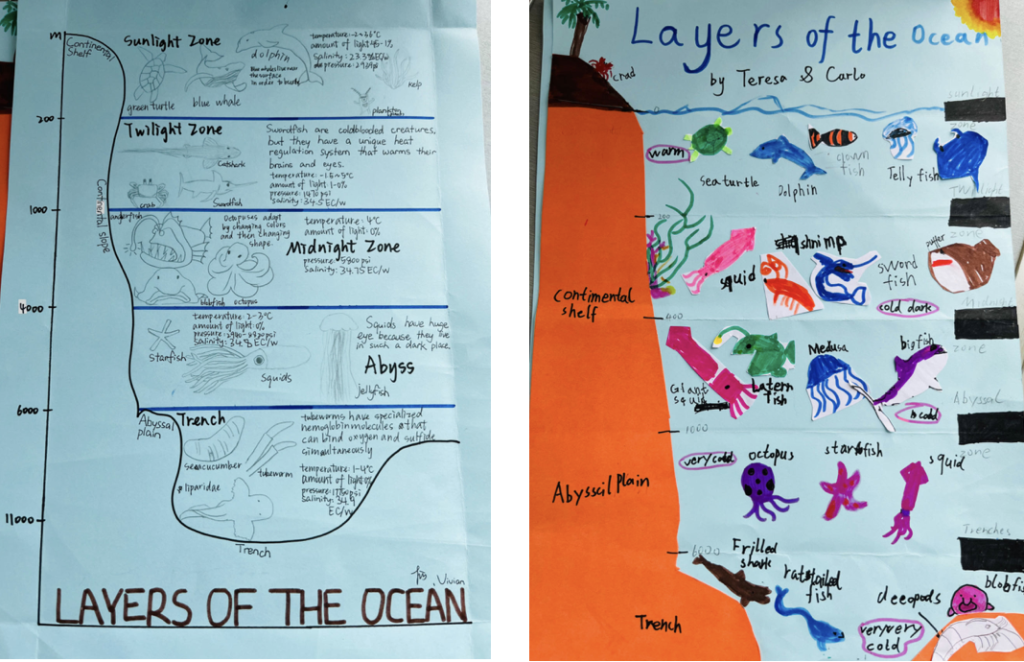 m
Continental
Shelf
Sunlight Zone
dolphin
Blue whales live near
the surface
in order to breathe
green turtle
blue whale
amount of light: 45-1%
plankton
kelp
200
Twilight Zone
Catshark
crab
Swordfish
Swordfish are coldblooded creatures,
but they have a unique heat
regulation system that warms their
brains and eyes.
amount of light: 1-0%
pressure: 1470 psi
salinity: 34.5 EC/w
Continental slope
1000
anglerfish
Octopuses adapt
by changing colors
and then changing
shape.
temperature: 4°C
amount of light: 0%
Midnight Zone
pressure: 5800 psi
salinity: 34.75 EC/w
blobfish
octopus
4000
temperature: 2-3°C
amount of light: 0%
salinity: 34.8 EC/w
Starfish
Squids
Squids have huge
eye because they live
in such a dark place.
Abyss
jellyfish
6000
Abyssal
plain
Trench
tubeworms have specialized
hemoglobin molecules that
can bind oxygen and sulfide
simultaneously
seacucumber
tubeworm
liparidae
temperature: 1-4°C
amount of light 0%
salinity: 34.9
EC/w
11000
Trench
Vivian
LAYERS OF THE OCEAN
Layers of the Ocean
by Teresa & Carlo
crad
0
sunlight
zone
warm
sea turtle
Dolphin
clown
fish
Jelly fish
Twilight
200
zone
squid
shrimp
sword
fish
puffer
cold dark
Midnight
contimental
shelf
600
zone
Giant
squid
Latern
fish
Medusa
big fish
cold
Abyssal
1000
zone
very cold
octopus
starfish
squid
Abysscil plain
Trenches
6000
Frilled
shark
fish
deeopods
blobfi
Trench
very very
cold